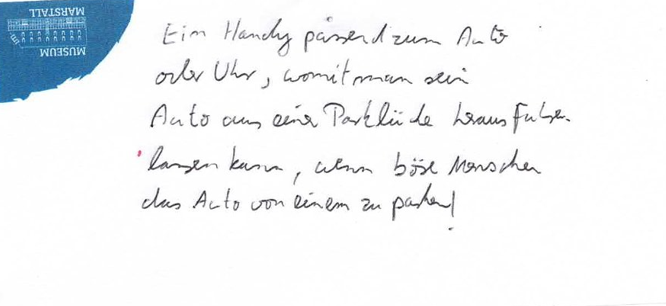 MUSEUM
MARSTALL
Ein Handy passend zum Auto
oder Uhr, womit man sein
Auto aus einer Parklücke heraus fahren
lassen kann, wenn böse Menschen
das Auto von einem zu parken!